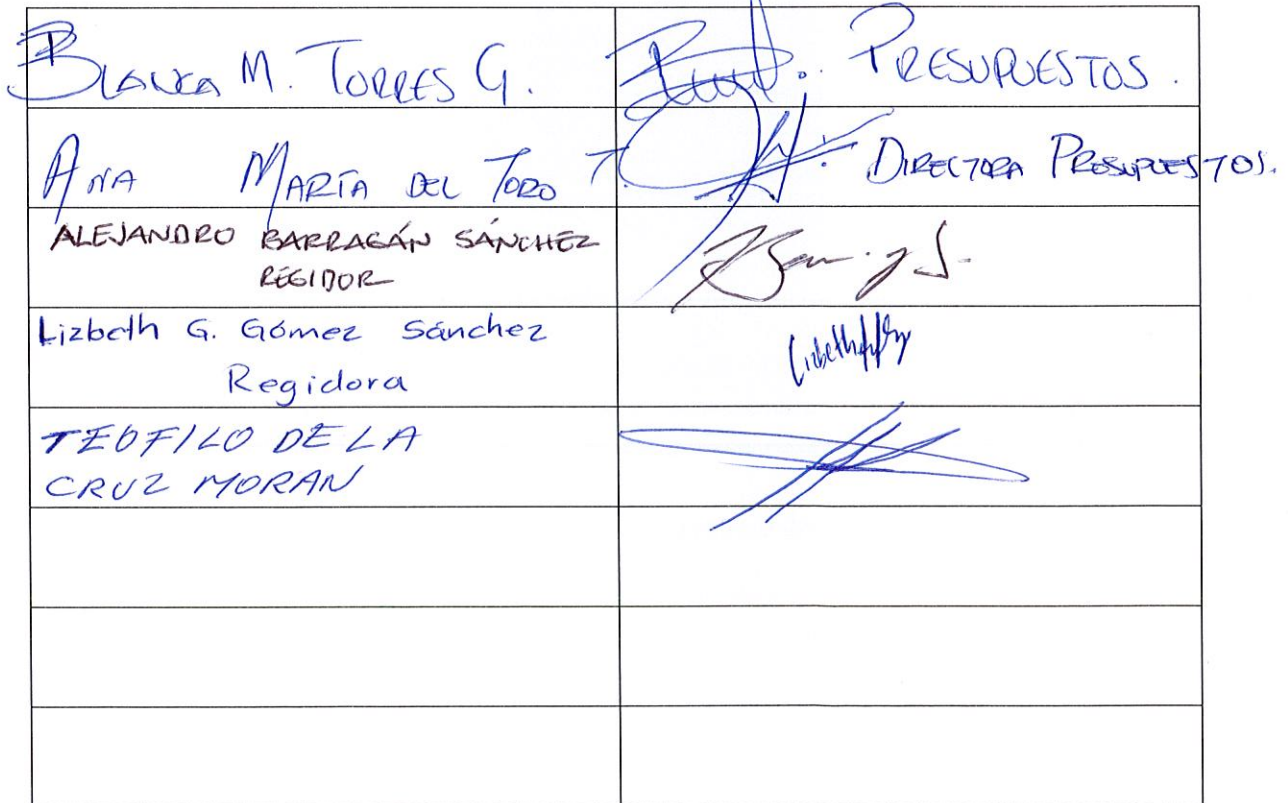 BLANCA M. TORRES G. PRESUPUESTOS.
ANA MARÍA DEL TORO T. DIRECTORA PRESUPUESTOS.
ALEJANDRO BARRAGÁN SÁNCHEZ
REGIDOR
Lizbeth G. Gómez Sánchez
Regidora
TEOFILO DE LA
CRUZ MORAN